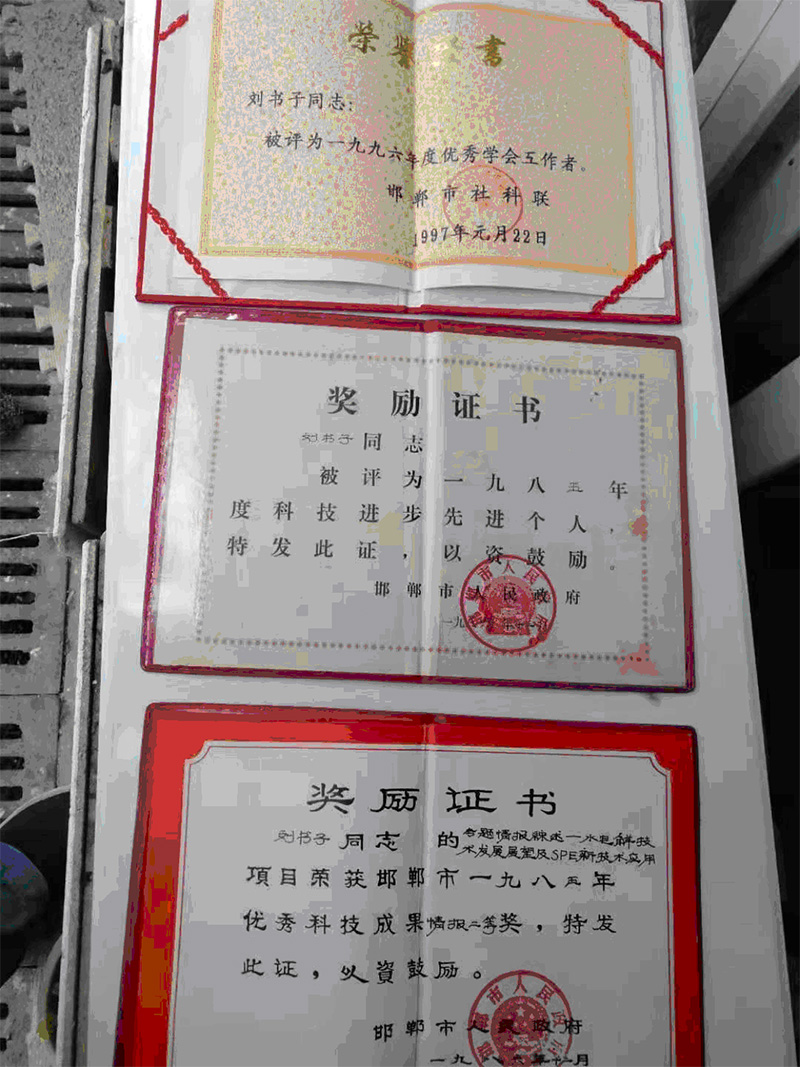 荣誉证书
刘书子同志：
被评为一九九六年度优秀学会工作者。
邯郸市社科联
1997年元月22日
奖励证书
刘书子同志
被评为一九八五年
度科技进步先进个人，
特发此证，以资鼓励。
邯郸市人民政府
奖励证书
刘书子同志的专题情报综述—水电解技
术发展展望及SPE新技术应用
項目荣获邯郸市一九八五年
优秀科技成果情报二等奖，特发
此证，以資鼓励。
邯郸市人民政府
一九八六年十二月